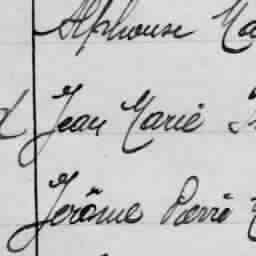 Alphonse Ma
Jean Marie
Jérôme Pierre